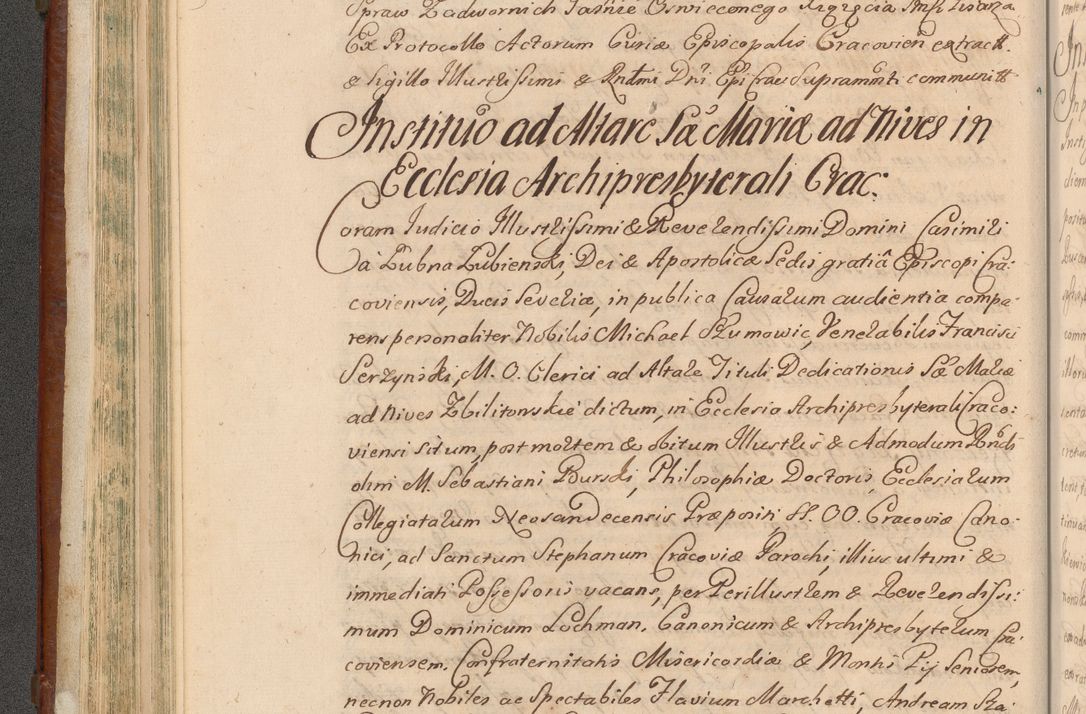 Spraw Zadwornich Jaśnie Oswieconego Xiązęcia Jmsci Pisarza
Ex Protocollo Actorum Curiæ Episcopalis Cracovien extract.
& Sigillo Illustrissimi & Rndmi Dni Epi Crac Supramnti communitt
Institutio ad Altare Sæ Mariæ ad Nives in
Ecclesia Archipresbyterali Crac:
Coram Judicio Illustrissimi & Reverendissimi Domini Casimiri
à Łubna Łubienski, Dei & Apostolicæ Sedis gratiâ Episcopi Cra-
coviensis, Ducis Severiæ, in publica Causarum audientia compa-
rens personaliter Nobilis Michael Szumowic, Venerabilis Francisci
Serzynski, M. O. Clerici ad Altare Tituli Dedicationis Sæ Mariæ
ad Nives Zbilitonskie dictum, in Ecclesia Archipresbyterali Craco:
viensi situm, post mortem & obitum Illustris & Admodum Rndi
olim M. Sebastiani Burski, Philosophiæ Doctoris, Ecclesiarum
Collegiatarum Neosandecensis Præpositi, SS. OO. Cracoviæ Cano-
nici, ad Sanctum Stephanum Cracoviæ Parochi, illius ultimi &
immediati Possessoris vacans, per Perillustrem & Reverendissi:
mum Dominicum Lochman, Canonicum & Archipresbyterum Cra-
coviensem, Confraternitatis Misericordiæ & Montis Pij Seniorem,
necnon Nobiles ac Spectabiles Flavium Marchetti, Andream Sza-